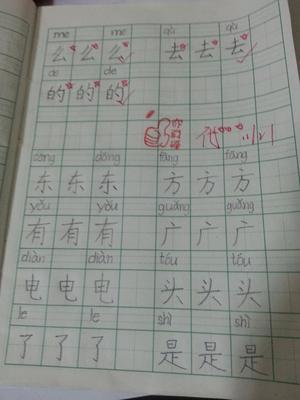 me me qù qù
么 么 么 去 去 去
de de
的 的 的
你真棒
dōng dōng fāng fāng
东 东 东 方 方 方
yǒu yǒu guǎng guǎng
有 有 有 广 广 广
diàn diàn tóu tóu
电 电 电 头 头 头
le le shì shì
了 了 了 是 是 是